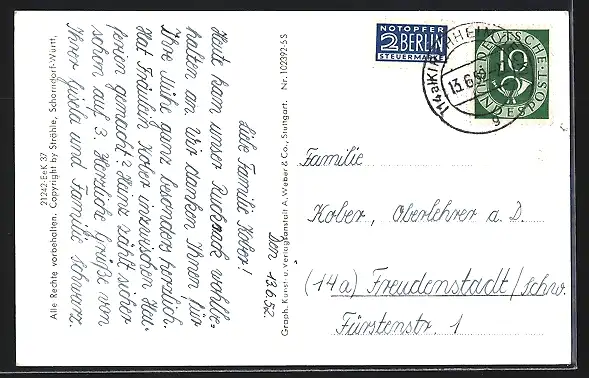 NOTOPFER
2 BERLIN
STEUERMARKE
DEUTSCHE
10
BUNDESPOST
(14a) KIRCHHEIM
13.6.52
g
Den 13.6.52.
Liebe Familie Kober!
Heute kam unser Rucksack wohlbe-
halten an. Wir danken Ihnen für
Ihre Mühe ganz besonders herzlich.
Hat Fräulein Kober inzwischen Heu-
ferien gemacht? Hanz zählt sicher
schon auf 3. Herzliche Grüße von
Ihrer Gisela und Familie Schwarz.
Familie
Kober, Oberlehrer a. D.
(14a) Freudenstadt/Schw.
Fürstenstr. 1
Graph. Kunst- u. Verlagsanstalt A. Weber & Co., Stuttgart. Nr. 102392-5S
21242 EeK 37
Alle Rechte vorbehalten. Copyright by Strähle, Schorndorf-Württ.